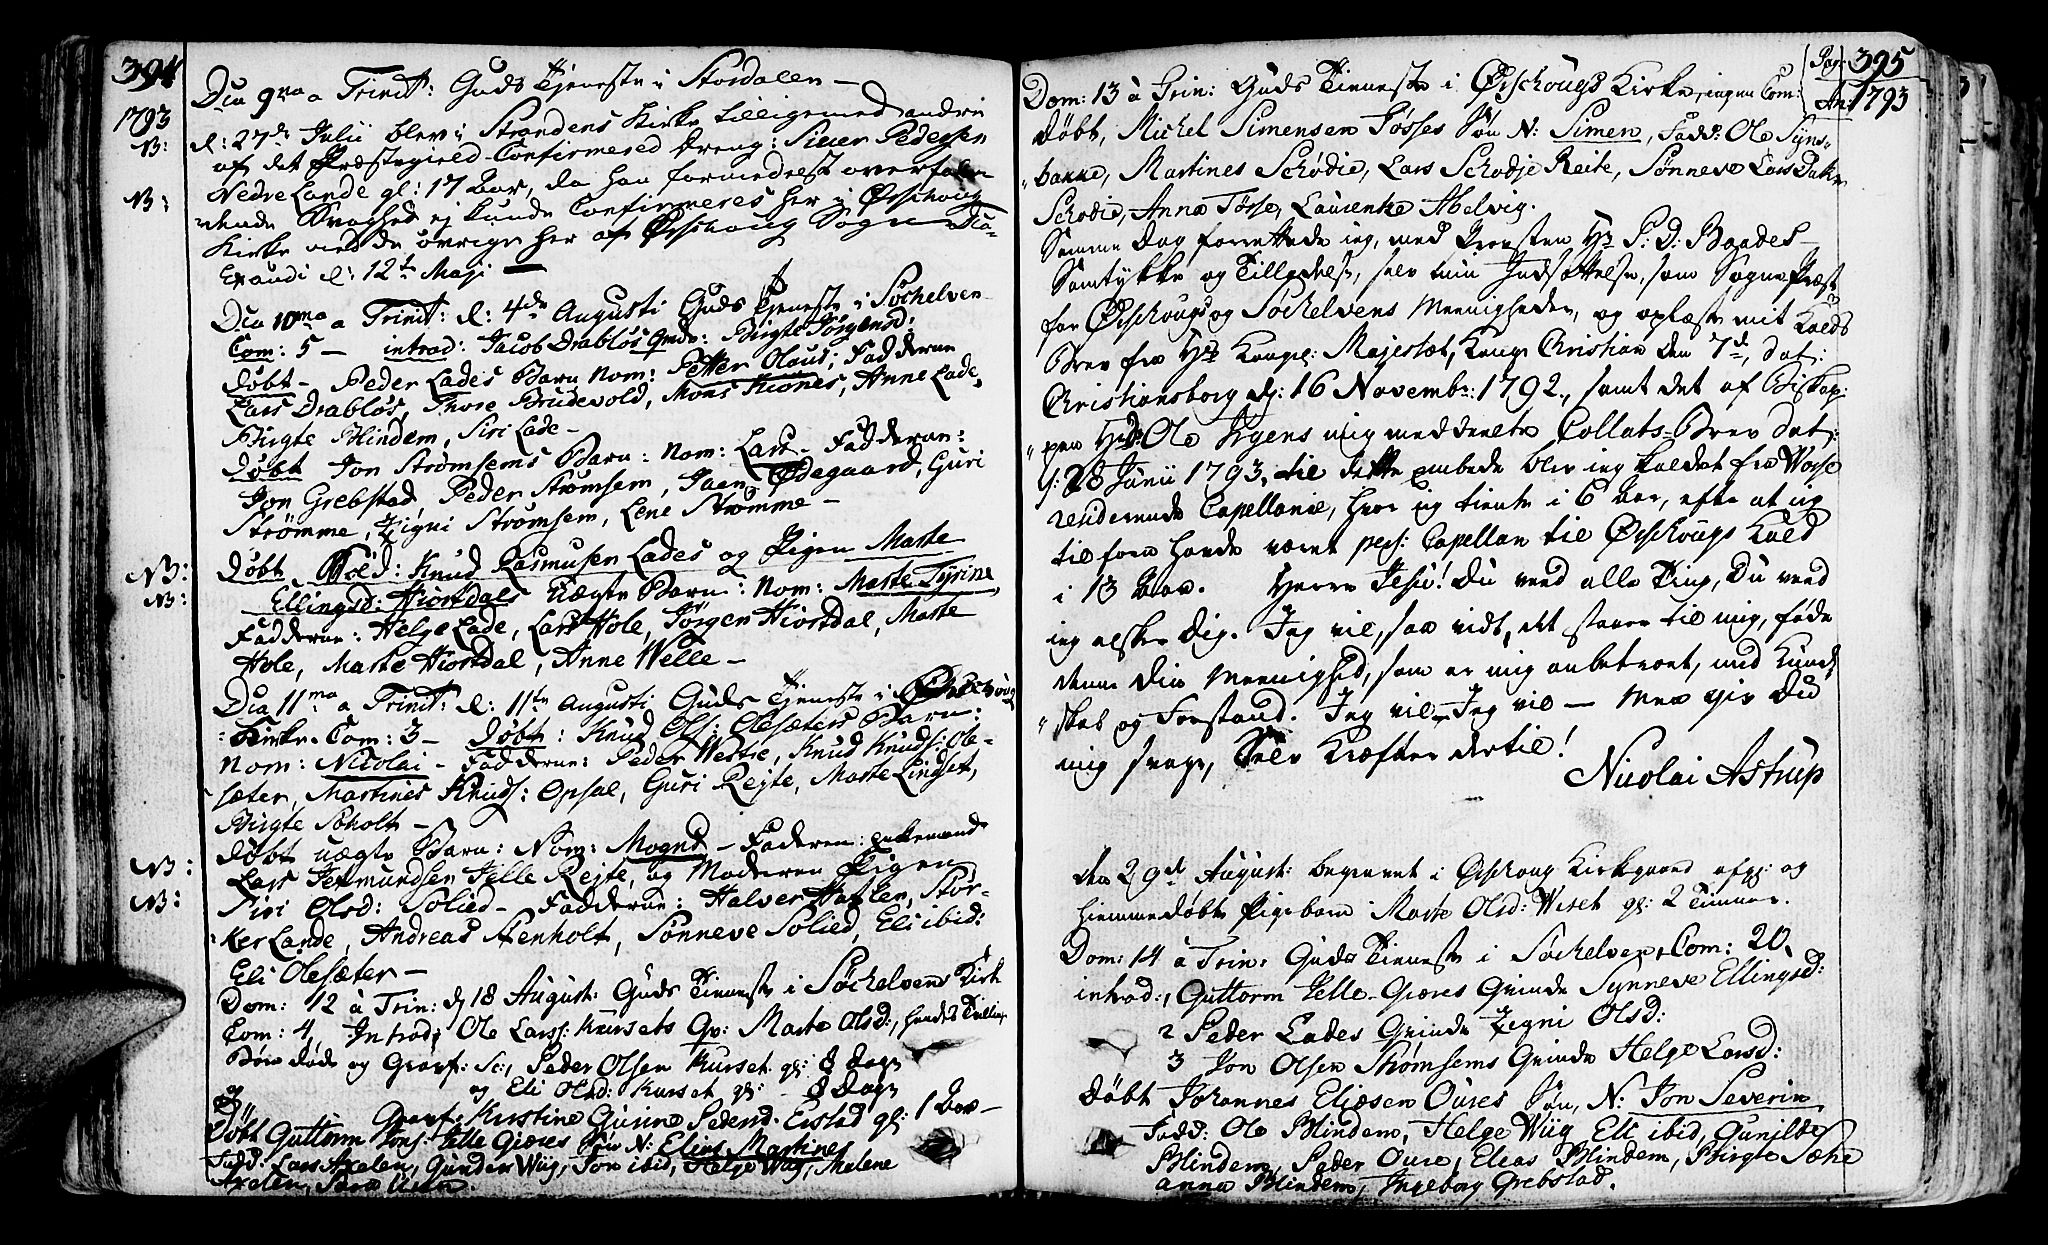 394
1793
Dia 9na a Trinit: Guds Tjeneste i Stordalen —
NB:
d: 27de Julii blev i Strandens Kirke tilligemed andre
af det Præstegield Confirmered Dreng: Siver Pedersen
NB:
Nedre Lande gl: 17 Aar, da han formedelst overfalende
Svaghed ej kunde Confirmeres her i Ørschoug
Kirke med de øvrige her af Ørschoug Sogn Dia
Exaudi d: 12te Maji —
Dia 10ma a Trinit: d: 4de Augusti Guds Tjeneste i Søchelven
Com: 5 — introd: Jacob Drabløs Qvde: Birgte Jørgensd:
Døbt — Peder Lades Barn Nom: Petter Olaus; Fadderne
Lars Drabløs, Thore Brudevold, Mons Kiønes, Anne Lade,
Birgte Blindem, Siri Lade —
Døbt Jon Strømsems Barn: Nom: Lars — Fadderne:
Jon Grebstad, Peder Strømsem, Jaen Ødegaard, Guri
Strømme, Zigni Strømsem, Lene Strømme —
NB: Døbt Sold: Knud Rasmusen Lades og Pigen Marte
NB: Ellingsd: Hiortdals Uægte Barn: Nom: Marte Tyrine
Fadderne: Helge Lade, Lars Hole, Jørgen Hiortdal, Marte
Hole, Marte Hiortdal, Anne Welle —
Dia 11ma a Trinit: d: 11te Augusti Guds Tjeneste i Ørschoug
Kirke. Com: 3 — Døbt: Knud Ols: Olesæters Barn:
Nom: Nicolai — Fadderne: Peder Westre, Knud Knuds: Olesæter,
Martines Knuds: Opsal, Guri Rejte, Marte Lindset,
Birgte Søholt —
NB: Døbt uægte Barn: Nom: Mogns — Faderen: Enkemand
Lars Jetmundsen Jelle Rejte, og Moderen Pigen
NB: Siri Olsd: Solied — Fadderne: Halver Hatlen, Størker
Lande, Andreas Stenholt, Sønneve Solied, Eli ibid:
Eli Olesæter —
Dom: 12 à Trin: d 18 August: Guds Tieneste i Søchelvens Kirk
Com: 4, Introd: Ole Larss: Kursets Qv: Marte Olsd:, hendes Tvillinge
Børn døde og Gravf: Sc:, Peder Olsen Kurset gl: 8 Dage
og Eli Olsd: Kurset gl: 8 Dage
og Gravf: Kirstine Gurine Pedersd. Erstad gl: 1 Aar —
Døbt Guttorm Jons: Jelle Giæres Søn N: Elias Martines
Fadd: Lars Axelen, Gunder Wiig, Jon ibid, Helge Wiig, Malene
Axelen, Sara Uren.
Pag: 395
An: 1793
Dom: 13 à Trin: Guds Tieneste i Ørschougs Kirke, ingen Com:
Døbt, Michel Simensen Tøsses Søn N: Simen, Fadd: Ole Synsbakke,
Martines Schødie, Lars Schodje Reite, Sønneve Lars
Schodie, Anna Tøsse, Laurenke Abelvig.
Samme Dag forrettede ieg, med Provsten Hr P: D: Baades
Samtykke og Tilladelse, selv min Indsættelse, som SognePræst
for Ørschougs og Søchelvens Menigheder, og oplæste mit Kalds
Brev fra Hans Kongel: Majestæt, Kong Christian den 7de, dat:
Christiansborg d: 16 Novembr: 1792, samt det af Biskoppen
Hr Ole Irgens mig meddeelte Collats-Brev dat:
d: 28 Junii 1793. til dette Embede blev ieg kaldet fra Worse
residerende Capellanie, hvor ieg tiente i 6 Aar, efter at ieg
tilforn havde været pers: Capellan til Ørschougs Kald
i 13 Aar. Herre Jesu! Du veed alle Ting, Du veed
ieg elsker Dig. Jeg vil, saa vidt, det staaer til mig, føde
denne Din Menighed, som er mig anbetroet, med Kundskab
og Forstand. Jeg vil — Jeg vil — Men giv Du
mig svage, Selv Kræfter dertil!
Nicolai Astrup
den 29de August: begravet i Ørschoug Kirkegaard en og
hiemmedøbt Pigebarn Marte Olsd: Weset gl: 2 Timer.
Dom: 14 à Trin: Guds Tieneste i Søchelven, Com: 20.
introd:, Guttorm Jelle-Giæres Qvinde Synneve Ellingsd:
2 Peder Lades Qvinde Zegni Olsd:
3 Jon Olsen Strømsems Qvinde Helge Larsd:
Døbt Johannes Eliæsen Oures Søn, N: Jon Severin
Fadd: Ole Blindem, Helge Wiig Eli ibid, Gunilde
Blindem, Peder Oure, Elias Blindem, Birgte Sæthre
Anna Blindem, Ingeborg Grebstad.